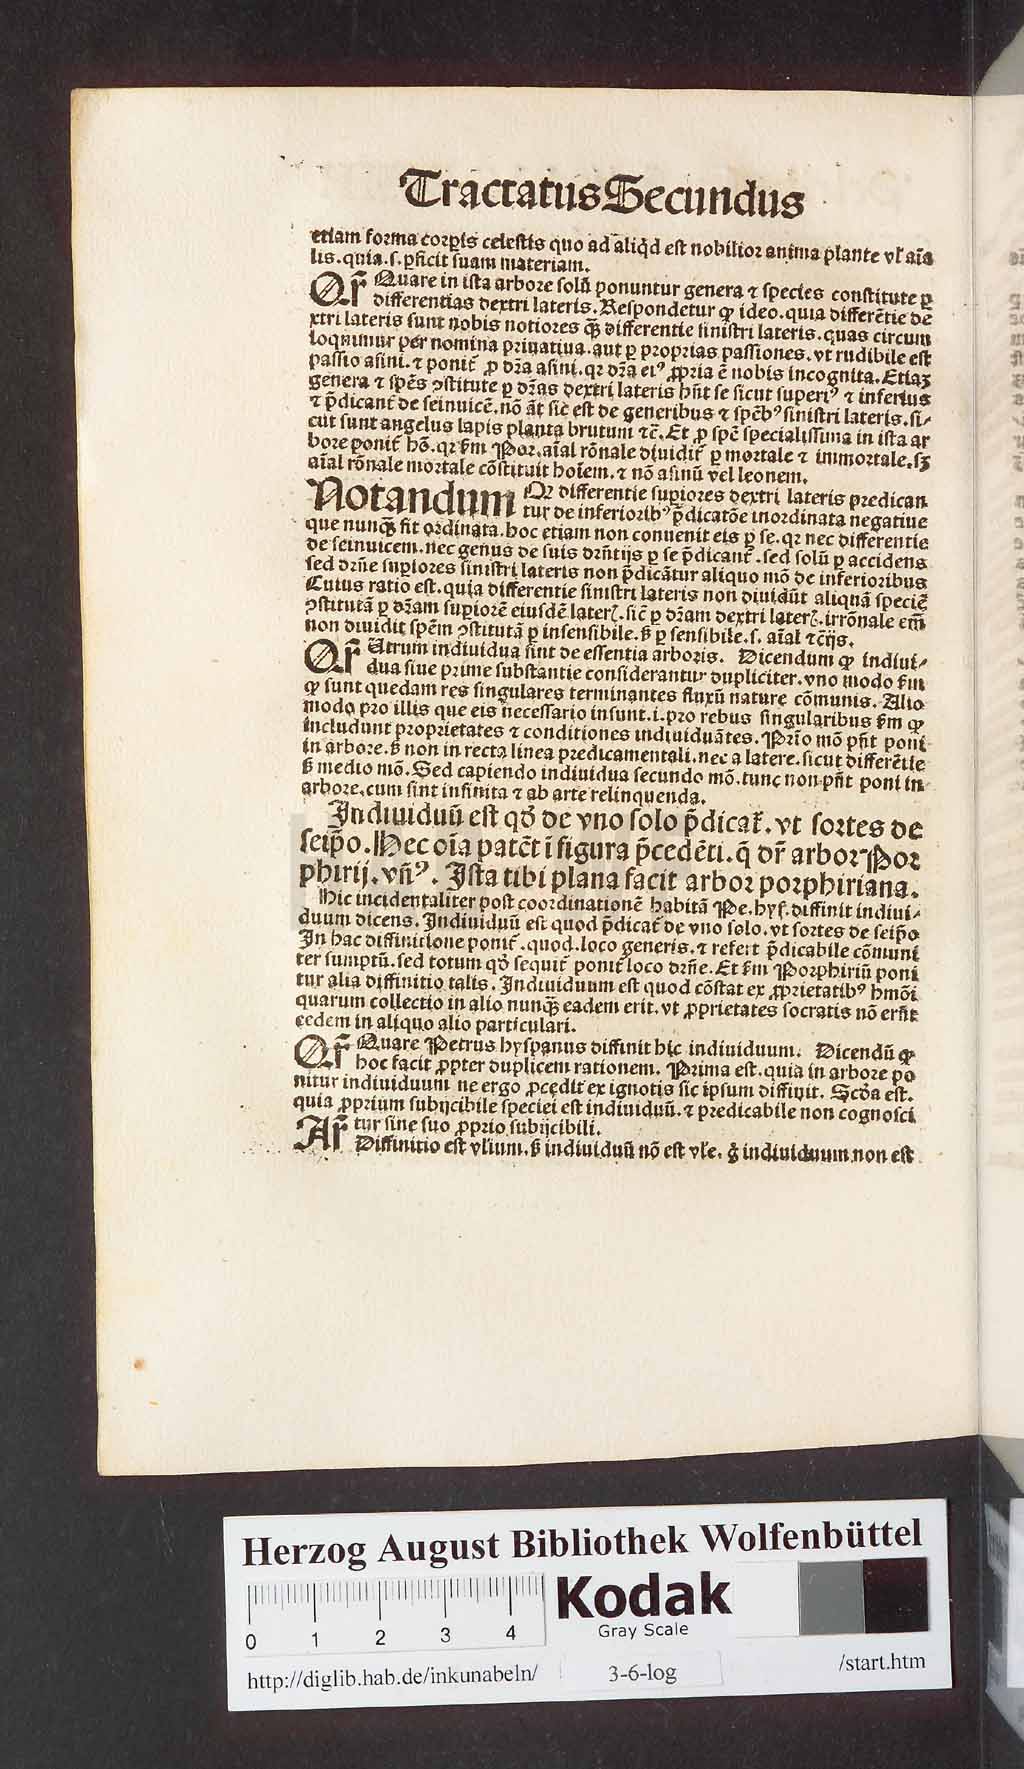 Tractatus Secundus
etiam forma corꝑis celestis quo ad aliqͥd est nobilior anima plante vł aīa
lis.quia.s.ꝑficit suam materiam.
Qr̄ Quare in ista arbore solū ponuntur genera ⁊ species constitute ꝑ
differentias dextri lateris. Respondetur ꝙ ideo.quia differētie de
xtri lateris sunt nobis notiores qꝫ̄ differentie sinistri lateris.quas circum
loquimur per nomina priuatiua.aut ꝑ proprias passiones.vt rudibile est
passio asini.⁊ ponit̄ ꝓ dr̄a asini.qꝛ dr̄a eiꝰ ꝓpria ē nobis incognita.Etiaꝫ
genera ⁊ spēs ꝯstitute ꝑ dr̄as dextri lateris hn̄t se sicut superiꝰ ⁊ inferius
⁊ p̄dicant̄ de seinuicē.nō āt sic est de generibus ⁊ spēbꝰ sinistri lateris.si⸗
cut sunt angelus lapis planta brutum ⁊c̄.Et ꝓ spē specialissima in ista ar
bore ponit̄ hō.qꝛ ẜm Por.aīal rōnale diuidit̄ ꝑ mortale ⁊ immortale.sꝫ
aīal rōnale mortale cōstituit hoīem.⁊ nō asinū vel leonem.
Notandum Qꝛ differentie supiores dextri lateris predican
tur de inferioribꝰ p̄dicatōe inordinata negatiue
que nunqꝫ̄ fit ordinata.hoc etiam non conuenit eis ꝑ se.qꝛ nec differentie
de seinuicem.nec genus de suis drn̄tijs ꝑ se p̄dicant̄.sed solū ꝑ accidens
sed drn̄e supiores sinistri lateris non p̄dicātur aliquo mō de inferioribus
Cuius ratio est.quia differentie sinistri lateris non diuidūt aliquā speciē
ꝯstitutā ꝑ dr̄am superiorē eiusdē laterꝭ.sic̄ ꝑ dr̄am dextri laterꝭ.irrōnale em̄
non diuidit spēm ꝯstitutā ꝑ insensibile.ẜ ꝑ sensibile.s. aīal ⁊c̄ijs.
Qr̄ Utrum indiuidua sint de essentia arboris. Dicendum ꝙ indiui⸗
dua siue prime substantie considerantur dupliciter.vno modo ẜm
ꝙ sunt quedam res singulares terminantes fluxū nature cōmunis.Alio
modo pro illis que eis necessario insunt.i.pro rebus singularibus ẜm ꝙ
includunt proprietates ⁊ conditiones indiuiduātes.Prīo mō pn̄t poni
in arbore.ẜ non in recta linea predicamentali.nec a latere.sicut differētie
ẜ medio mō.Sed capiendo indiuidua secundo mō.tunc non pn̄t poni in
arbore.cum sint infinita ⁊ ab arte relinquenda.
Indiuiduū est qd̄ de vno solo p̄dicat̄.vt sortes de
seip̄o.Hec oīa patēt ī figura p̄cedēti.q̄ dr̄ arbor Por
phirij.vn̄ꝰ. Ista tibi plana facit arbor porphiriana.
Hic incidentaliter post coordinationē habitā Pe.hys.diffinit indiui⸗
duum dicens.Indiuiduū est quod p̄dicat̄ de vno solo.vt sortes de seip̄o
In hac diffinitione ponit̄.quod.loco generis.⁊ refert p̄dicabile cōmuni
ter sumptū.sed totum qd̄ sequit̄ ponit̄ loco drn̄e.Et ẜm Porphiriū poni
tur alia diffinitio talis.Indiuiduum est quod cōstat ex ꝓprietatibꝰ hmōi
quarum collectio in alio nunqꝫ̄ eadem erit.vt ꝓprietates socratis nō erūt
eedem in aliquo alio particulari.
Qr̄ Quare Petrus hyspanus diffinit hic indiuiduum. Dicendū ꝙ
hoc facit ꝓpter duplicem rationem. Prima est.quia in arbore po
nitur indiuiduum ne ergo ꝓcedit̄ ex ignotis sic ipsum diffinit. Scd̄a est.
quia ꝓprium subijcibile speciei est indiuiduū.⁊ predicabile non cognosci
tur sine suo ꝓprio subijcibili.
Ar̄ Diffinitio est vlium.ẜ indiuiduū nō est vłe.gͦ indiuiduum non est
Herzog August Bibliothek Wolfenbüttel
0 1 2 3 4
Kodak
Gray Scale
http://diglib.hab.de/inkunabeln/ 3-6-log /start.htm